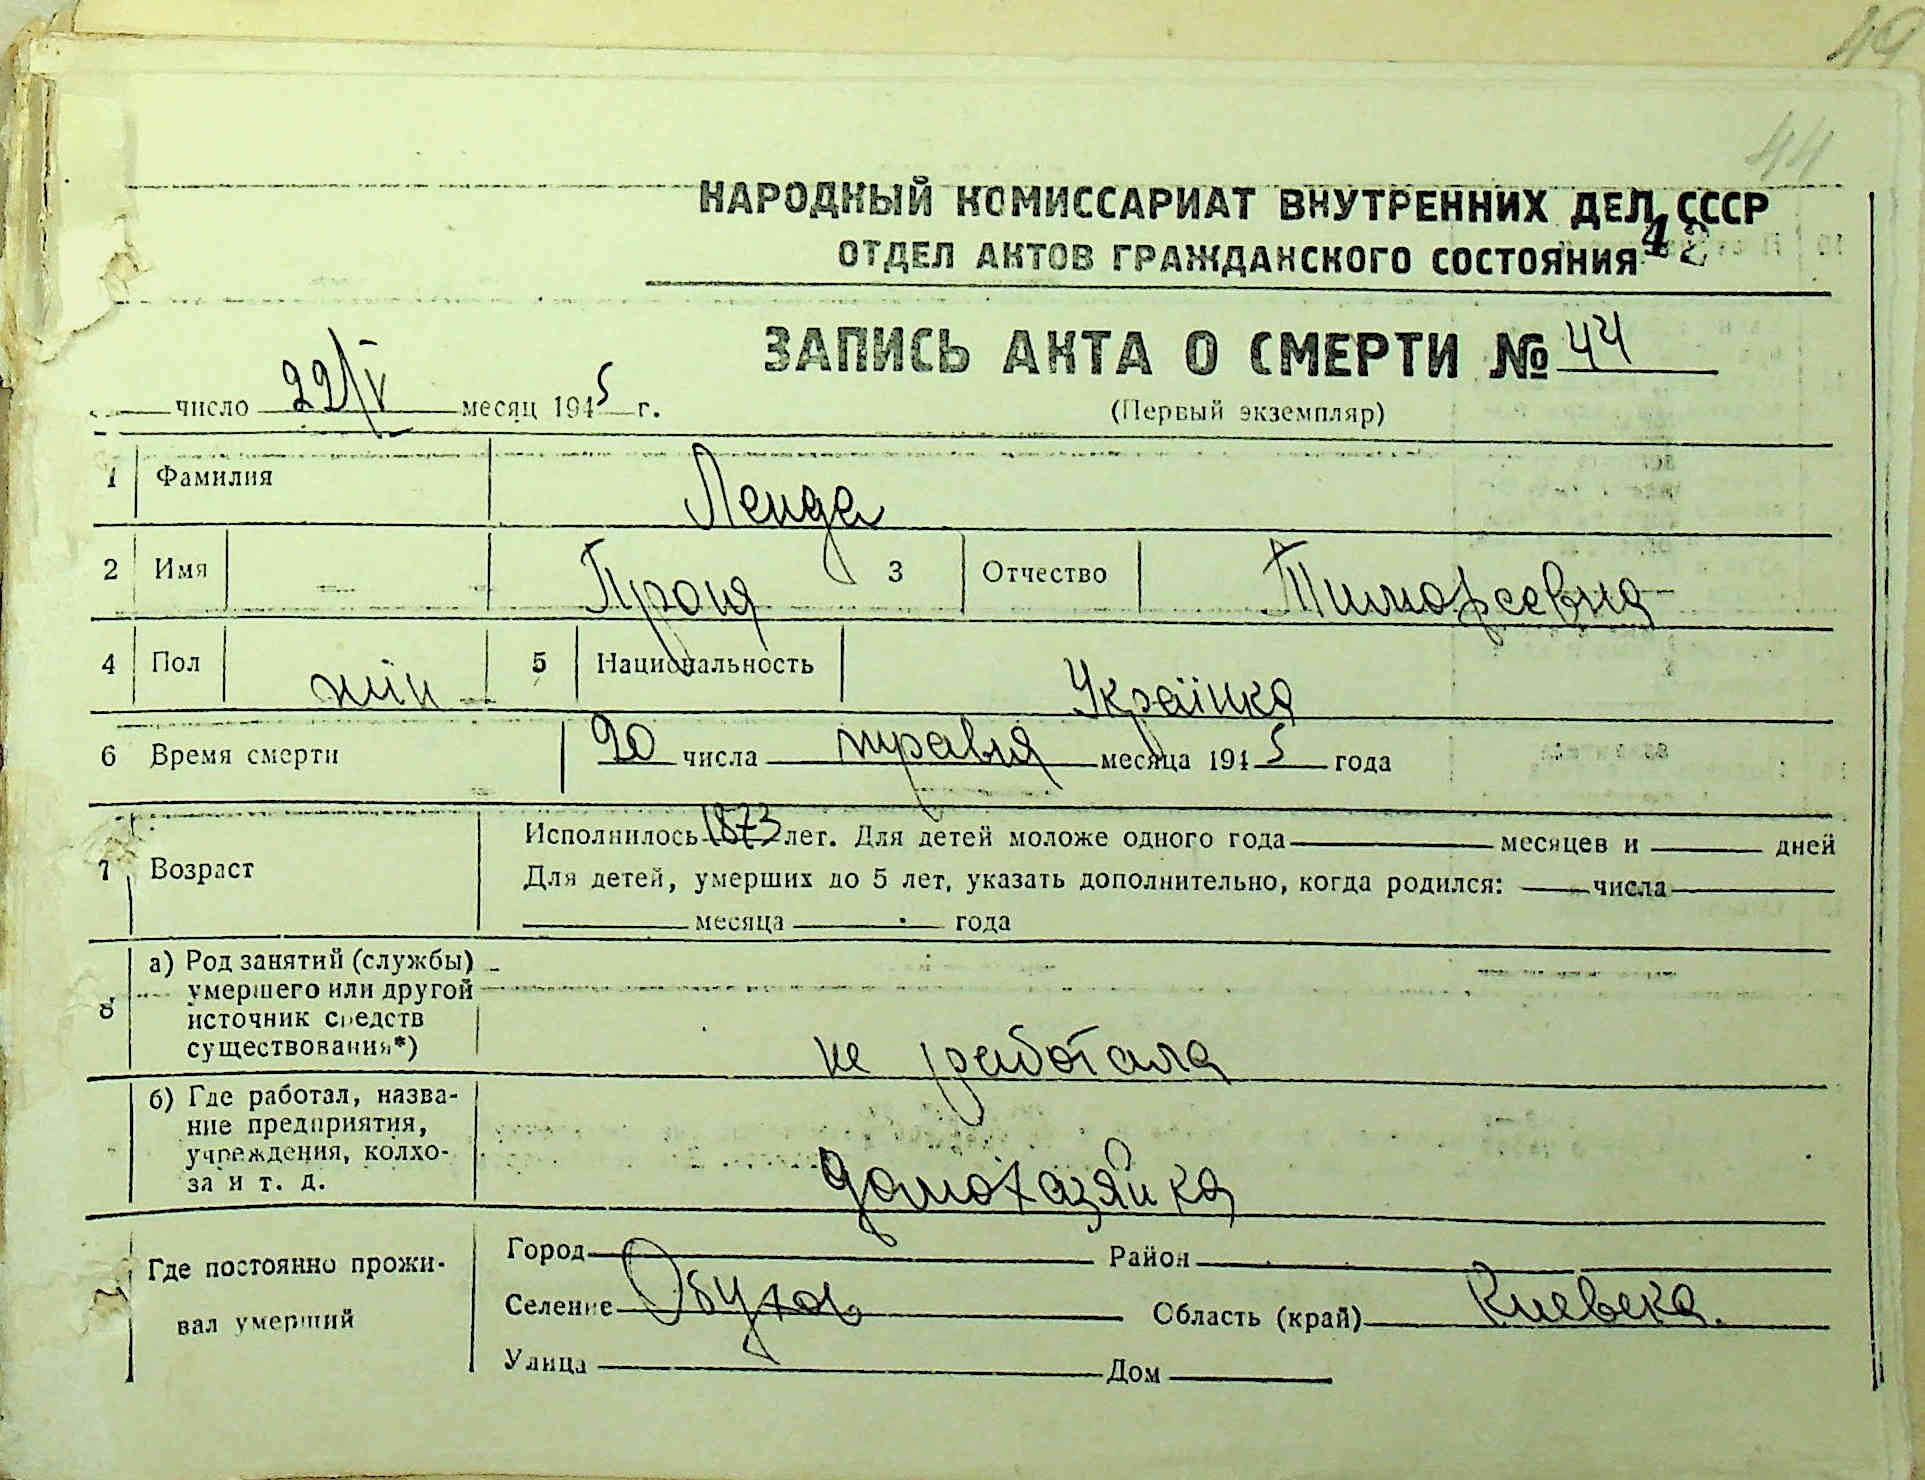 49
44
НАРОДНЫЙ КОМИССАРИАТ ВНУТРЕННИХ ДЕЛ СССР
ОТДЕЛ АКТОВ ГРАЖДАНСКОГО СОСТОЯНИЯ
42
ЗАПИСЬ АКТА О СМЕРТИ № 44
число 22/V месяц 1945 г. (Первый экземпляр)
1 Фамилия Ленда
2 Имя Проня 3 Отчество Тимофеевна
4 Пол жін 5 Национальность Українка
6 Время смерти 20 числа травня месяца 1945 года
7 Возраст Исполнилось 1873 лет. Для детей моложе одного года месяцев и дней
Для детей, умерших до 5 лет, указать дополнительно, когда родился: числа
месяца года
8 а) Род занятий (службы)
умершего или другой
источник средств
существования*) не работала
б) Где работал, назва-
ние предприятия,
учреждения, колхо-
за и т. д. домохазяйка
Где постоянно прожи-
вал умерший
Город Район
Селение Обухов Область (край) Киевска.
Улица Дом